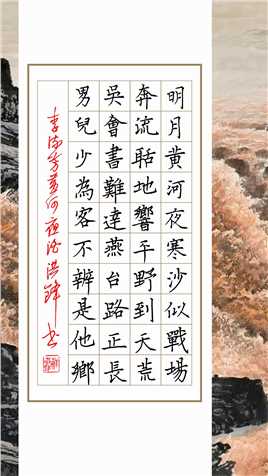 明月黃河夜寒沙似戰場
奔流聒地響平野到天荒
吳會書難達燕台路正長
男兒少為客不辨是他鄉
李流芳黃河夜泊洪 书